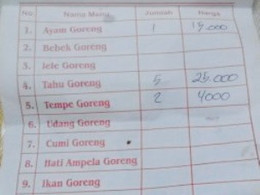 No Nama Menu Jumlah Harga
1. Ayam Goreng 1 15.000
2. Bebek Goreng
3. lele Goreng
4. Tahu Goreng 5 25.000
5. Tempe Goreng 2 4000
6. Udang Goreng
7. Cumi Goreng
8. Hati Ampela Goreng
9. Ikan Goreng